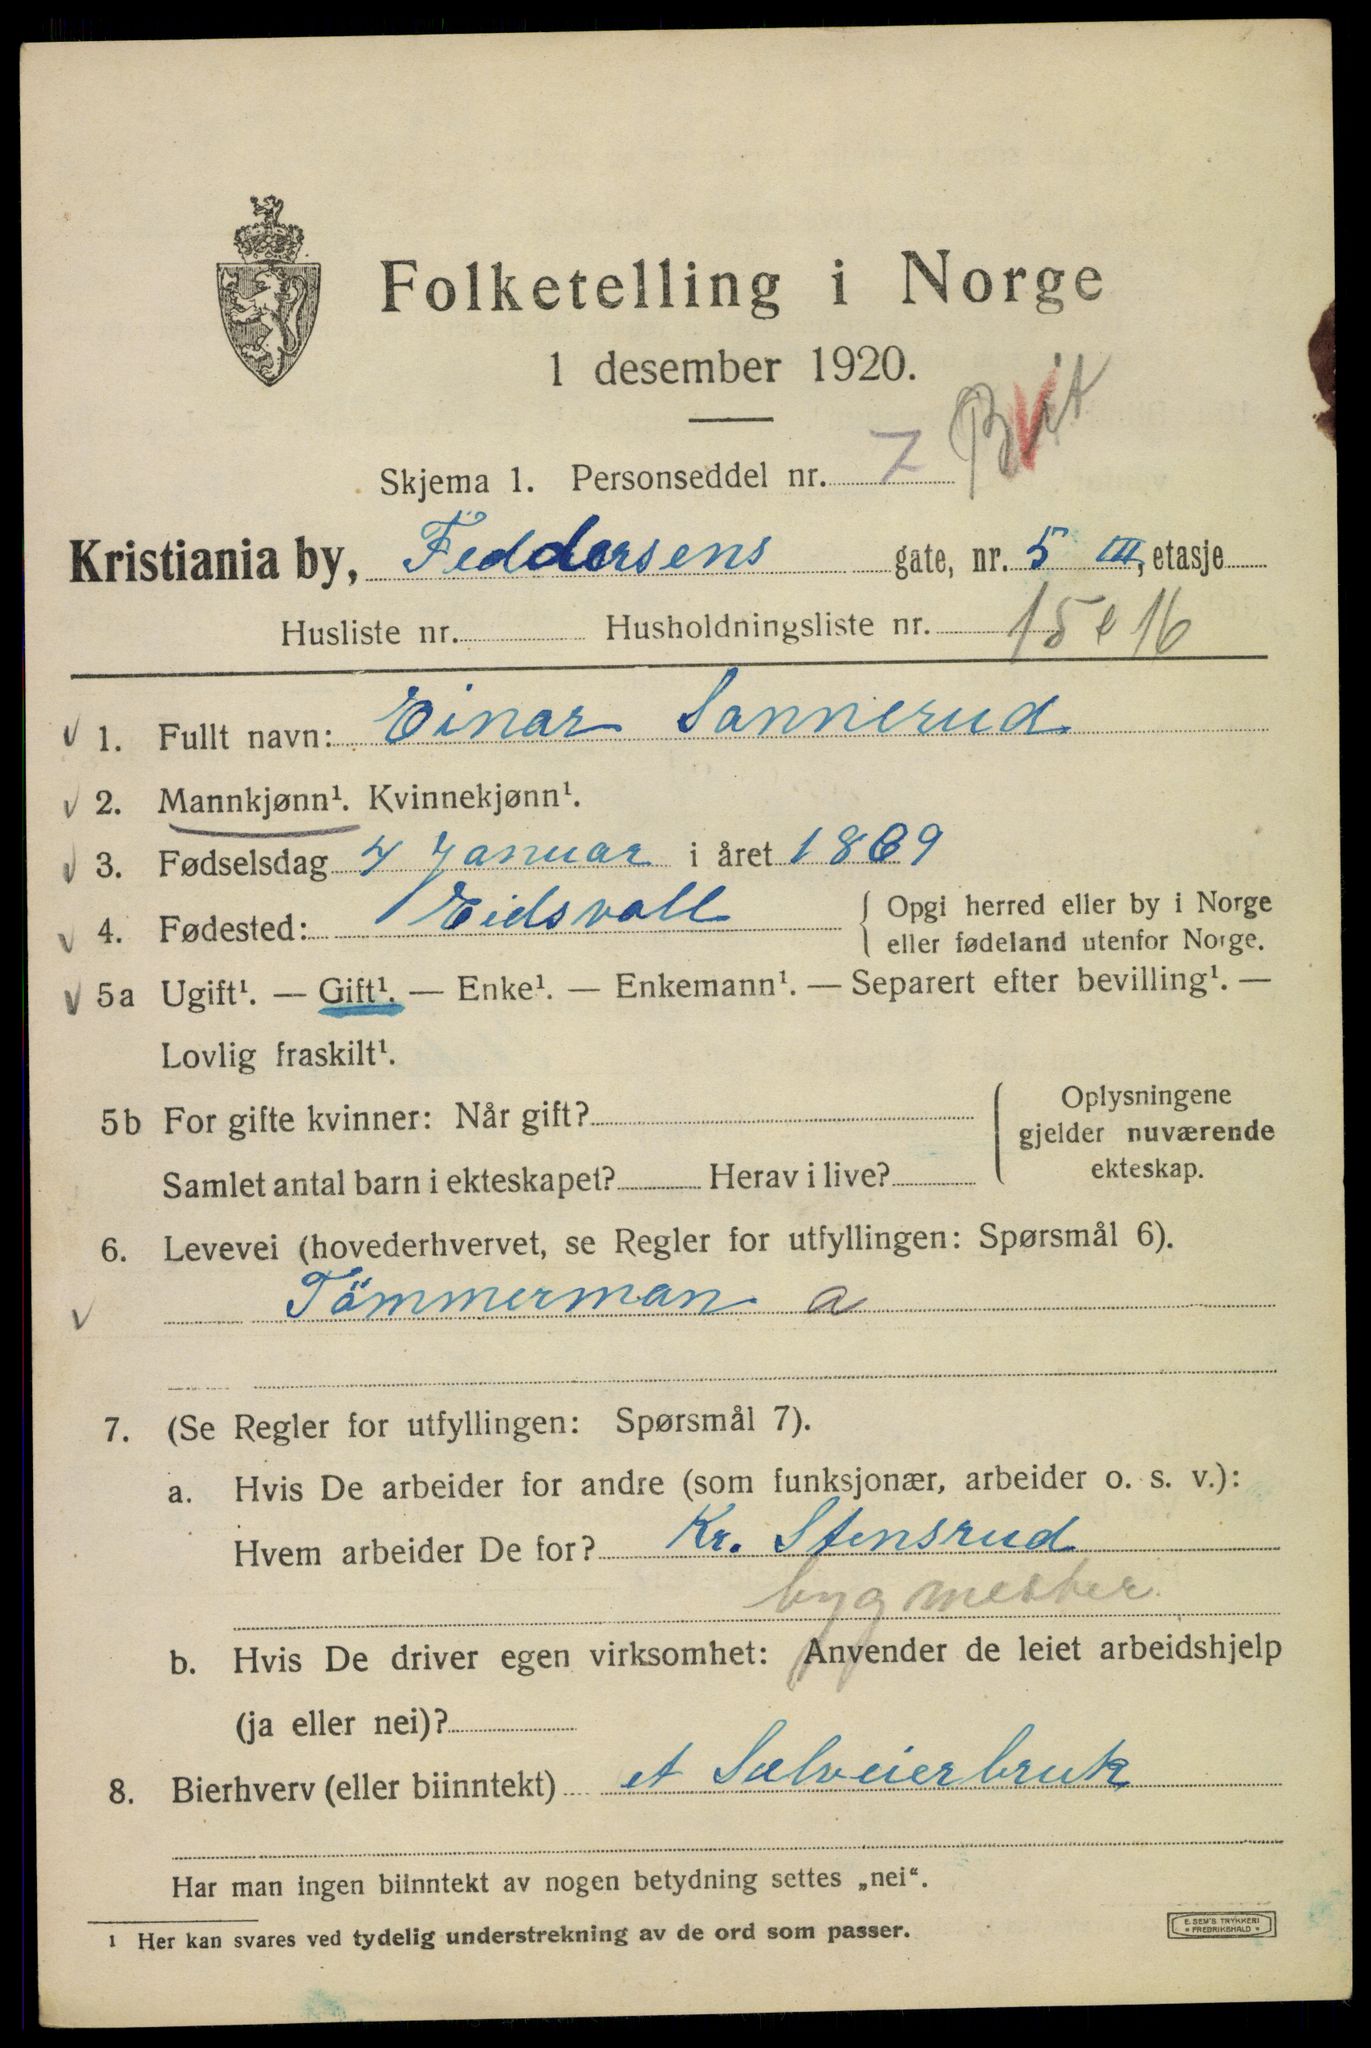 Folketelling i Norge
1 desember 1920.
Skjema 1. Personseddel nr. 7
Kristiania by, Feddersens gate, nr. 5 III, etasje
Husliste nr. Husholdningsliste nr. 15 e 16
1. Fullt navn: Einar Sannerud
2. Mannkjønn¹. Kvinnekjønn¹.
3. Fødselsdag 4 Januar i året 1869
4. Fødested: Eidsvall { Opgi herred eller by i Norge
eller fødeland utenfor Norge.
5a Ugift¹. — Gift¹. — Enke¹. — Enkemann¹. — Separert efter bevilling¹. —
Lovlig fraskilt¹.
5b For gifte kvinner: Når gift? { Oplysningene
gjelder nuværende
Samlet antal barn i ekteskapet? Herav i live? ekteskap.
6. Levevei (hovederhvervet, se Regler for utfyllingen: Spørsmål 6).
Tömmerman a
7. (Se Regler for utfyllingen: Spørsmål 7).
a. Hvis De arbeider for andre (som funksjonær, arbeider o. s. v.):
Hvem arbeider De for? Kr. Stensrud
bygmester
b. Hvis De driver egen virksomhet: Anvender de leiet arbeidshjelp
(ja eller nei)?
8. Bierhverv (eller biinntekt) et Selveierbruk
Har man ingen biinntekt av nogen betydning settes „nei“.
1 Her kan svares ved tydelig understrekning av de ord som passer.
E. SEM'S TRYKKERI
FREDRIKSHALD